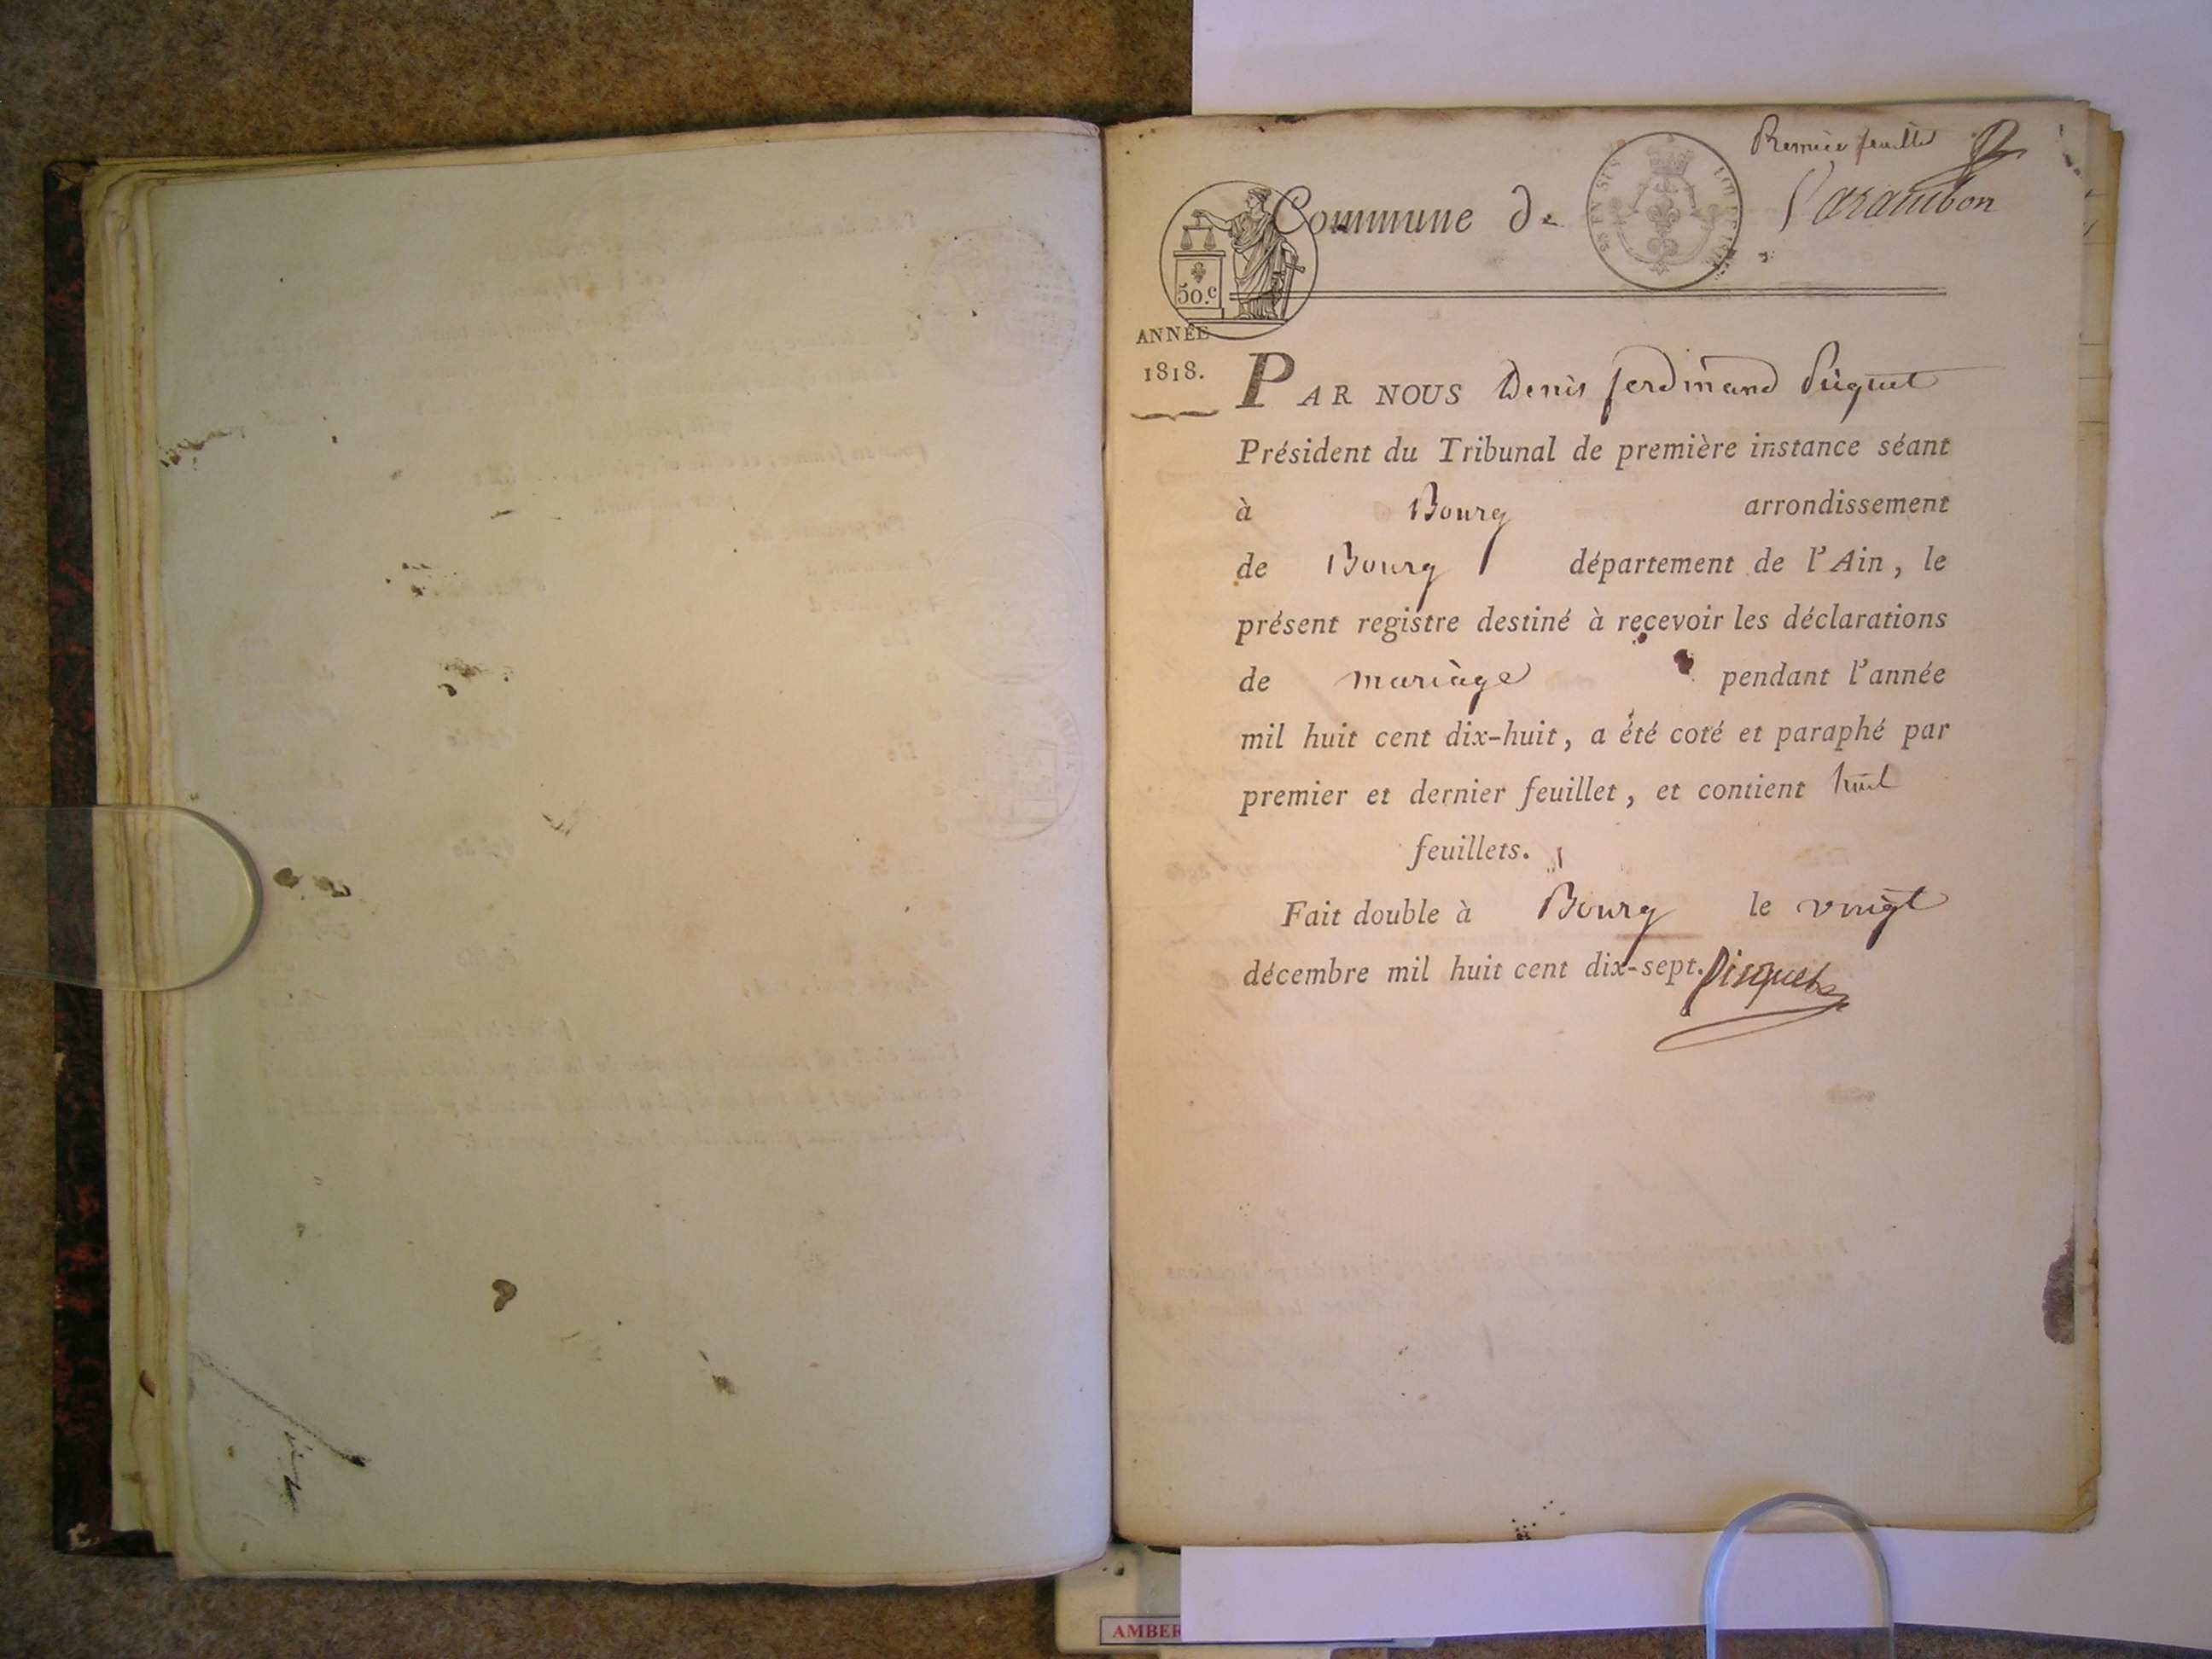 Premier feuillet
Commune de Varambon
50.c
ANNÉE
1818.
PAR NOUS Denis ferdinand Piquet
Président du Tribunal de première instance séant
à Bourg arrondissement
de Bourg département de l'Ain, le
présent registre destiné à recevoir les déclarations
de mariage pendant l'année
mil huit cent dix-huit, a été coté et paraphé par
premier et dernier feuillet, et contient huit
feuillets.
Fait double à Bourg le vingt
décembre mil huit cent dix-sept. Piquet
AMBER